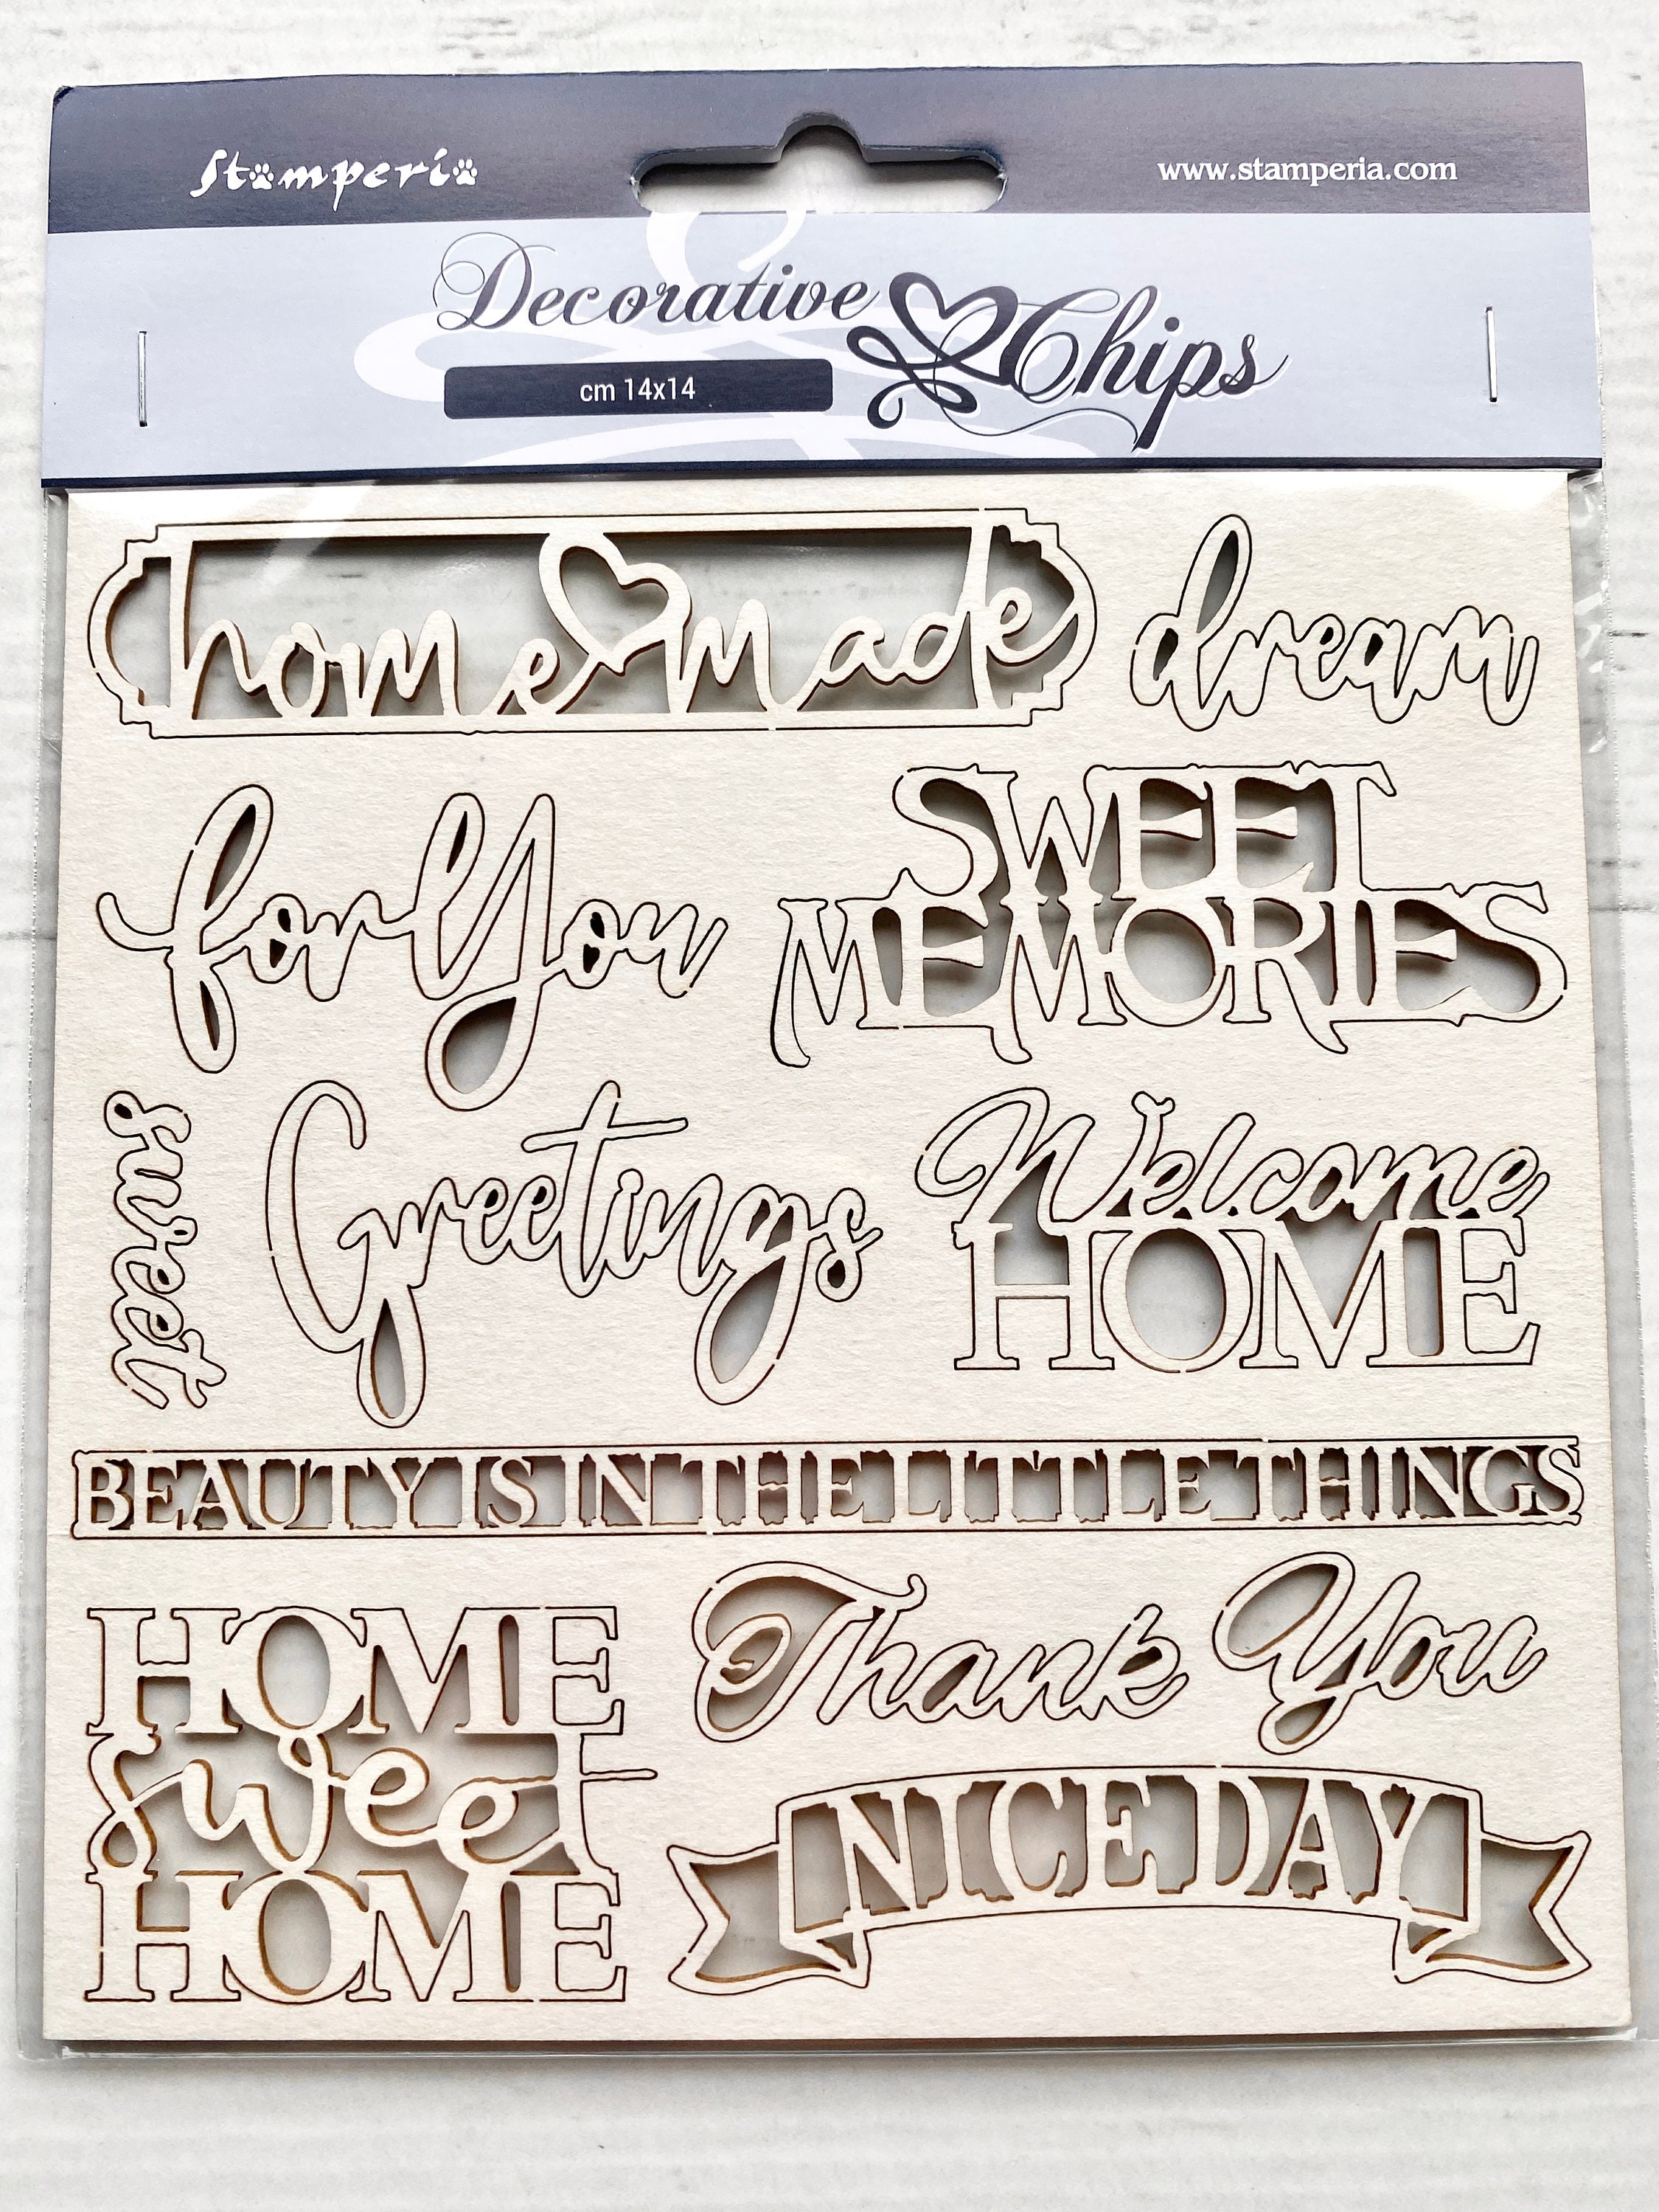 Stamperia
www.stamperia.com
Decorative Chips
cm 14x14
home made
dream
for You
SWEET
MEMORIES
sweet
Greetings
Welcome
HOME
BEAUTY IS IN THE LITTLE THINGS
HOME
sweet
HOME
Thank You
NICE DAY